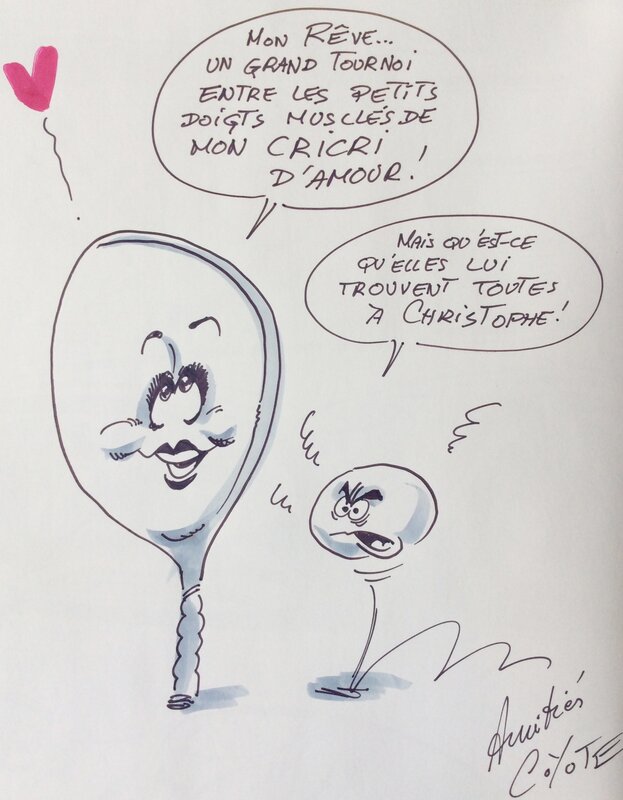 MON RÊVE...
UN GRAND TOURNOI
ENTRE LES PETITS
DOIGTS MUSCLÉS DE
MON CRICRI
D'AMOUR!
MAIS QU'EST-CE
QU'ELLES LUI
TROUVENT TOUTES
À CHRISTOPHE!
Amitiés
COYOTE